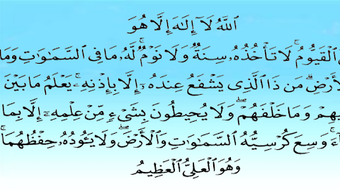 اللَّهُ لَآ إِلَٰهَ إِلَّا هُوَ
الْقَيُّومُ ۚ لَا تَأْخُذُهُۥ سِنَةٌ وَلَا نَوْمٌ ۚ لَّهُۥ مَا فِى السَّمَٰوَٰتِ وَمَا
مَن ذَا الَّذِى يَشْفَعُ عِندَهُۥٓ إِلَّا بِإِذْنِهِۦ ۚ يَعْلَمُ مَا بَيْنَ
وَمَا خَلْفَهُمْ ۖ وَلَا يُحِيطُونَ بِشَىْءٍ مِّنْ عِلْمِهِۦٓ إِلَّا بِمَا
وَسِعَ كُرْسِيُّهُ السَّمَٰوَٰتِ وَالْأَرْضَ ۖ وَلَا يَـُٔودُهُۥ حِفْظُهُمَا ۚ
وَهُوَ الْعَلِىُّ الْعَظِيمُ